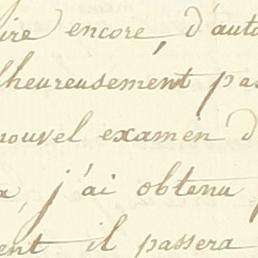 ire encore, d'auto
lheureusement pas
nouvel examen d
a, j'ai obtenu p
ent il passera